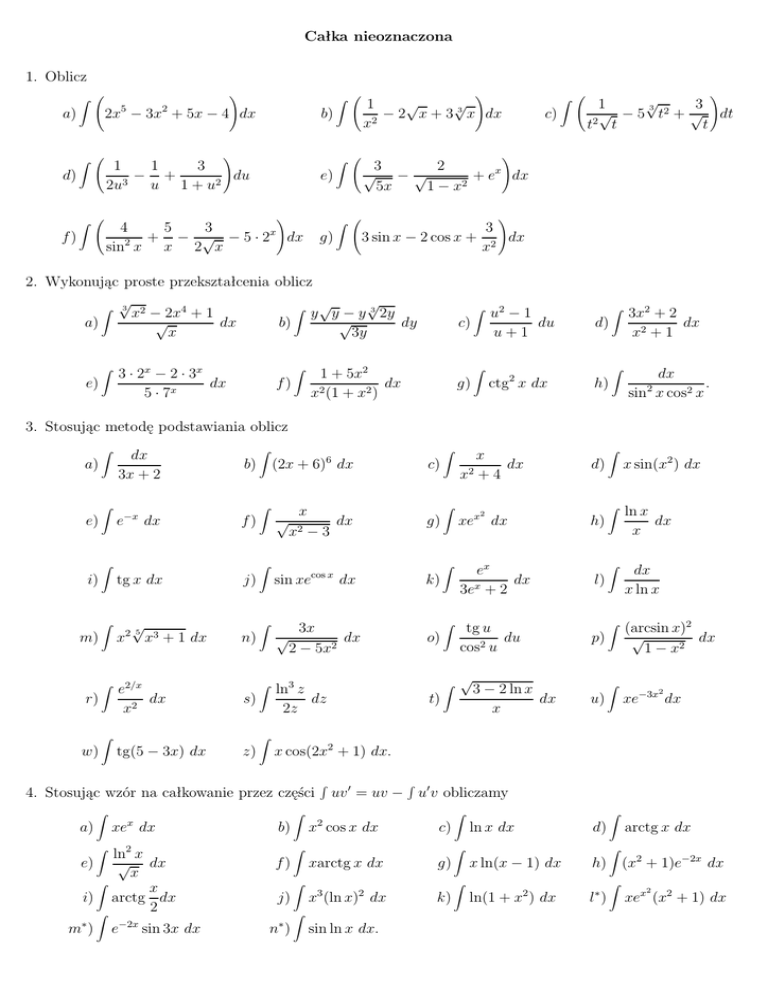 Całka nieoznaczona
1. Oblicz
a) ∫ (2x⁵ − 3x² + 5x − 4) dx b) ∫ (1/x² − 2√x + 3∛x) dx c) ∫ (1/(t²√t) − 5∛(t²) + 3/√t) dt
d) ∫ (1/(2u³) − 1/u + 3/(1 + u²)) du e) ∫ (3/√(5x) − 2/√(1 − x²) + eˣ) dx
f) ∫ (4/sin² x + 5/x − 3/(2√x) − 5 · 2ˣ) dx g) ∫ (3 sin x − 2 cos x + 3/x²) dx
2. Wykonując proste przekształcenia oblicz
a) ∫ (∛(x²) − 2x⁴ + 1)/√x dx b) ∫ (y√y − y∛(2y))/√(3y) dy c) ∫ (u² − 1)/(u + 1) du d) ∫ (3x² + 2)/(x² + 1) dx
e) ∫ (3 · 2ˣ − 2 · 3ˣ)/(5 · 7ˣ) dx f) ∫ (1 + 5x²)/(x²(1 + x²)) dx g) ∫ ctg² x dx h) ∫ dx/(sin² x cos² x).
3. Stosując metodę podstawiania oblicz
a) ∫ dx/(3x + 2) b) ∫ (2x + 6)⁶ dx c) ∫ x/(x² + 4) dx d) ∫ x sin(x²) dx
e) ∫ e^(−x) dx f) ∫ x/√(x² − 3) dx g) ∫ xe^(x²) dx h) ∫ ln x/x dx
i) ∫ tg x dx j) ∫ sin xe^(cos x) dx k) ∫ eˣ/(3eˣ + 2) dx l) ∫ dx/(x ln x)
m) ∫ x² ⁵√(x³ + 1) dx n) ∫ 3x/√(2 − 5x²) dx o) ∫ tg u/cos² u du p) ∫ (arcsin x)²/√(1 − x²) dx
r) ∫ e^(2/x)/x² dx s) ∫ ln³ z/(2z) dz t) ∫ √(3 − 2 ln x)/x dx u) ∫ xe^(−3x²) dx
w) ∫ tg(5 − 3x) dx z) ∫ x cos(2x² + 1) dx.
4. Stosując wzór na całkowanie przez części ∫ uv′ = uv − ∫ u′v obliczamy
a) ∫ xeˣ dx b) ∫ x² cos x dx c) ∫ ln x dx d) ∫ arctg x dx
e) ∫ ln² x/√x dx f) ∫ xarctg x dx g) ∫ x ln(x − 1) dx h) ∫ (x² + 1)e^(−2x) dx
i) ∫ arctg x/2 dx j) ∫ x³(ln x)² dx k) ∫ ln(1 + x²) dx l*) ∫ xe^(x²)(x² + 1) dx
m*) ∫ e^(−2x) sin 3x dx n*) ∫ sin ln x dx.